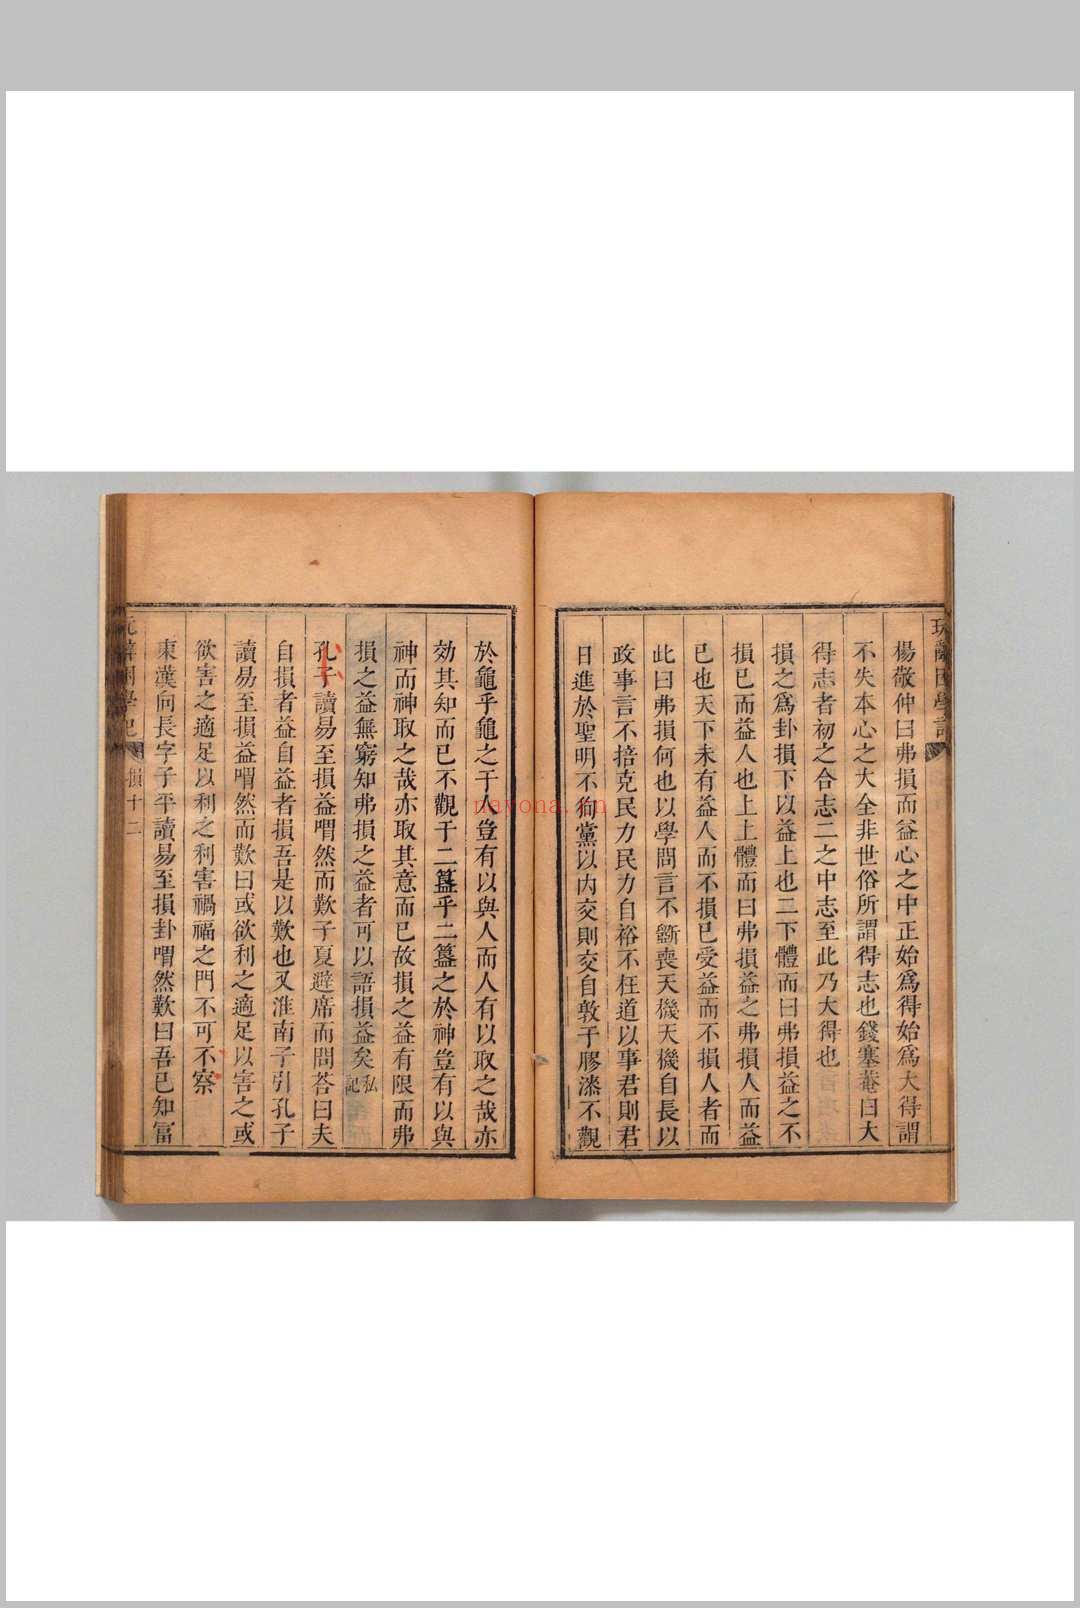 楊敬仲曰弗損而益心之中正始爲得始爲大得謂
不失本心之大全非世俗所謂得志也錢塞菴曰大
得志者初之合志二之中志至此乃大得也
損之爲卦損下以益上也二下體而曰弗損益之不
損已而益人也上上體而曰弗損益之弗損人而益
已也天下未有益人而不損已受益而不損人者而
此曰弗損何也以學問言不斵喪天機天機自長以
政事言不掊克民力民力自裕不枉道以事君則君
日進於聖明不狥黨以内交則交自敦于膠漆不觀
於龜乎龜之于人豈有以與人而人有以取之哉亦
効其知而已不觀于二簋乎二簋之於神豈有以與
神而神取之哉亦取其意而已故損之益有限而弗
損之益無窮知弗損之益者可以語損益矣私記
孔子讀易至損益喟然而歎子夏避席而問荅曰夫
自損者益自益者損吾是以歎也又淮南子引孔子
讀易至損益喟然而歎曰或欲利之適足以害之或
欲害之適足以利之利害禍福之門不可不察
東漢向長字子平讀易至損卦喟然歎曰吾已知富
損十二
nayona.cn